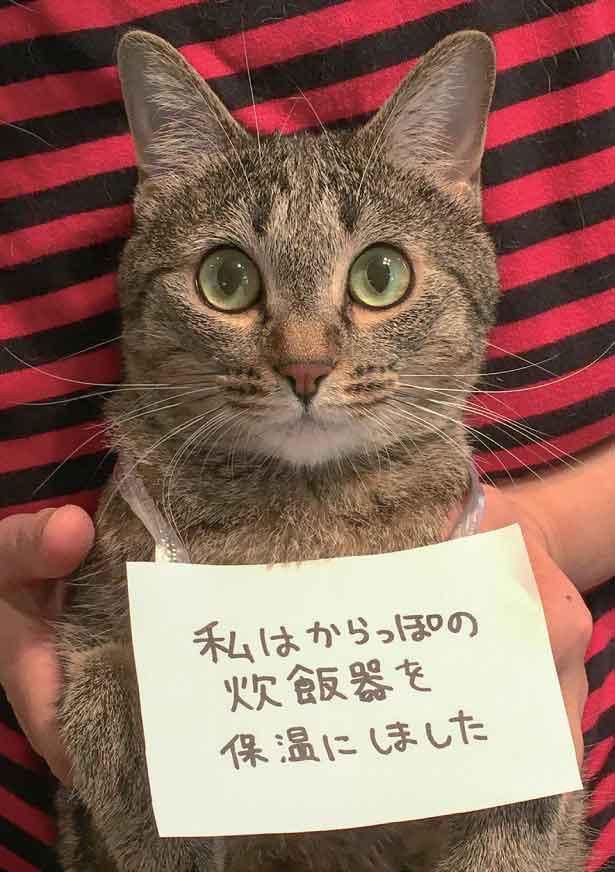 私はからっぽの
炊飯器を
保温にしました